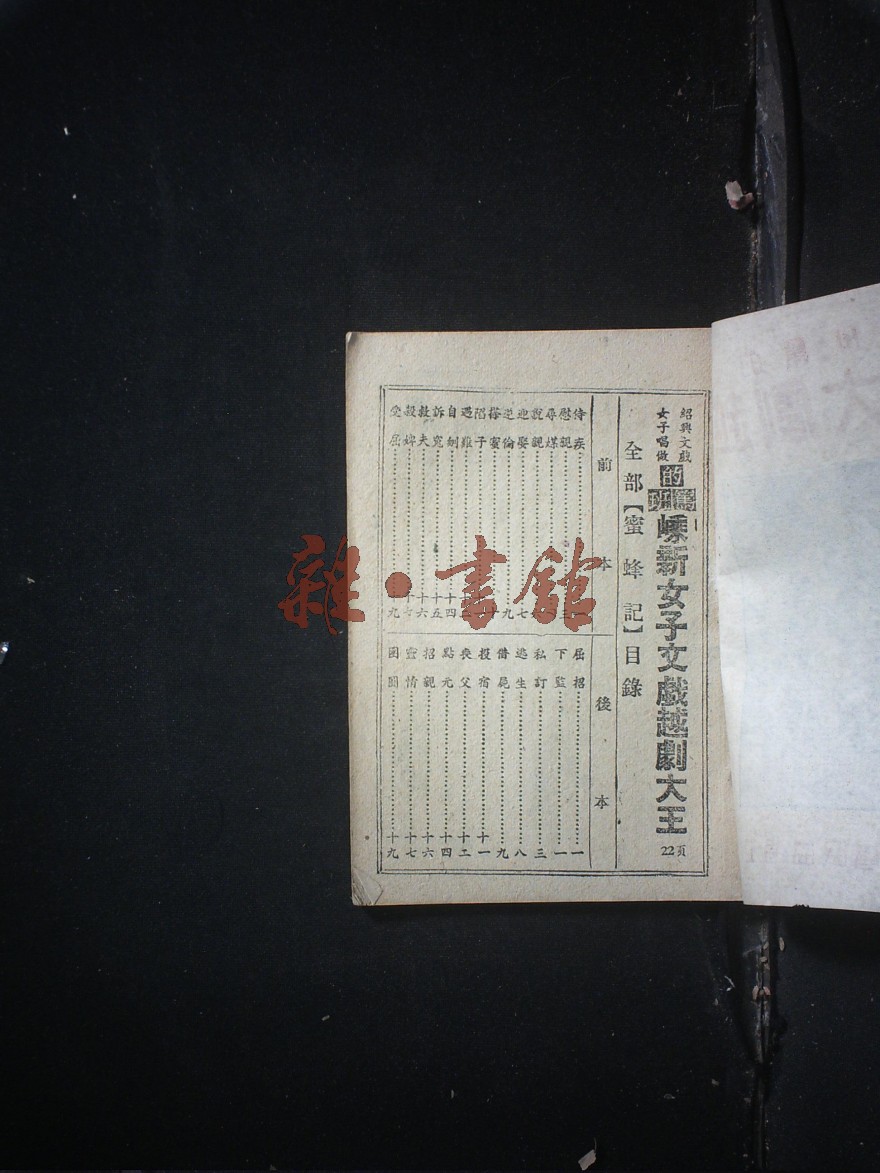 紹興文戲
女子唱做
的篤班
嵊新女子文戲越劇大王
22頁
全部【蜜蜂記】目錄
前本
侍疾
慰親
尋媒
說親
迎娶 七
逆倫 九
搭蜜
陷子
遇難
自刎 十四
訴寃 十五
救夫 十六
殺婢
受屈 九
後本
屈招 一
下監 一
私訂 三
逃生 八
借屍 九
投宿 十一
喪父 十二
點元 十四
招親 十六
密情 十七
團圓 十九
雜·書館